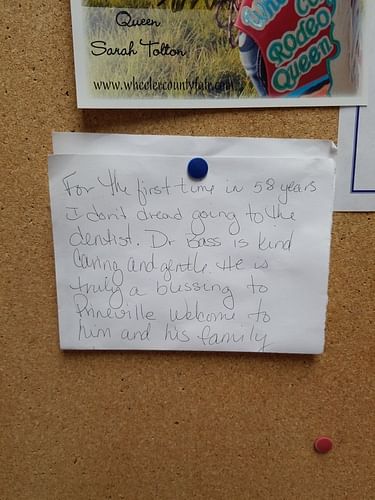 Queen
Sarah Tolton
Rodeo
Queen
www.wheelercountyfair.com
For the first time in 58 years
I don't dread going to the
dentist. Dr Bass is kind
Caring and gentle. He is
truly a blessing to
Prineville Welcome to
him and his family